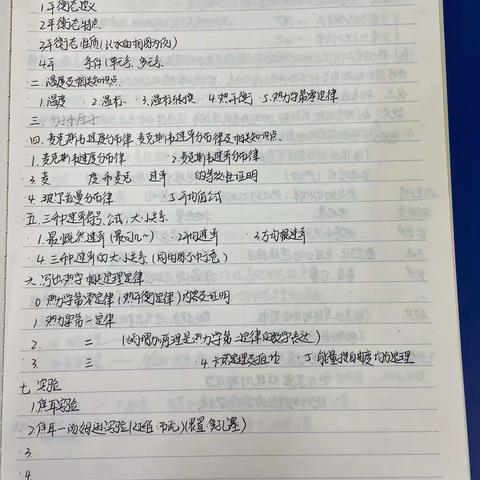 1.平衡态定义
2.平衡态特点
3.平衡态性质(以水的相图为例)
4.平 条件(单元系、多元系
二.温度及相关知识点.
1.温度 2.温标. 3.温标转换 4.热平衡 5.热力学第零定律
三.
四.麦克斯韦速度分布律、麦克斯韦速率分布律及相关知识点.
1.麦克斯韦速度分布律 2.麦克斯韦速率分布律
3.麦 度和麦克 速率 的等效性证明
4.玻尔兹曼分布律 5.平均值公式
五.三种速率符号、公式、大小关系.
1.最概然速率(最可几~) 2.平均速率 3.方均根速率
4.三种速率的大小关系(同种分子中)
六.写出热学相关定理定律
0.热力学第零定律(热平衡定律)内容及证明
1.热力学第一定律
2. 二 (熵增加原理是热力学第二定律的数学表达)
3. 三 4.卡诺定理及推论 5.能量按自由度均分定理
七.实验
1.焦耳实验
2.焦耳—汤姆逊实验(过程.节流)(装置.多孔塞)
3
4.